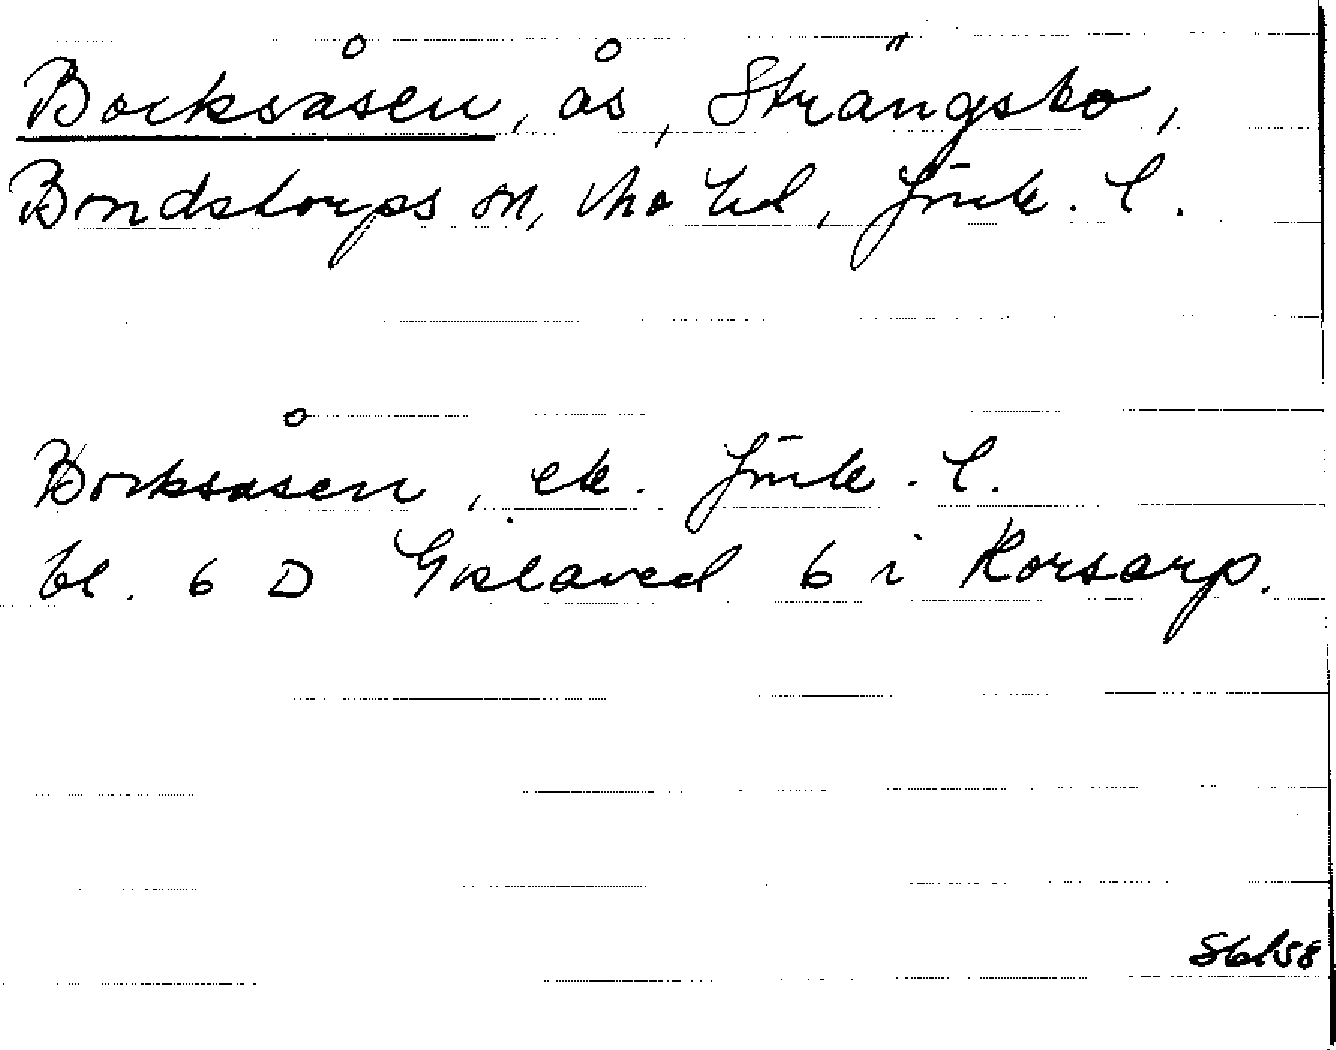 Bocksåsen, ås, Strängsbo,
Bondstorps sn, Mo hd, Jönk. l.
Bocksåsen, ek. Jönk. l.
bl. 6 D Gislaved 6 i Korsarp.
Sbl58